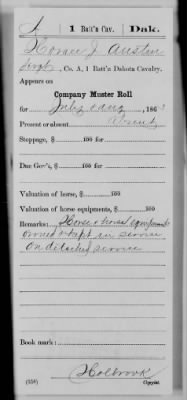 A | 1 Batt'n Cav. | Dak.
Horace J Austin
Sergt, Co. A, 1 Batt'n Dakota Cavalry.
Appears on
Company Muster Roll
for July & Aug, 186
Present or absent Present
Stoppage, $ 100 for
Due Gov't, $ 100 for
Valuation of horse, $ 100
Valuation of horse equipments, $ 100
Remarks: Horse & horse equipments
owned & kept in service
On detached service
Book mark:
Holbrook
(358) Copyist.